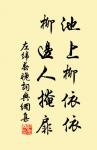 池上柳依依
柳邊人掩扉
左緯春晚詞典網集